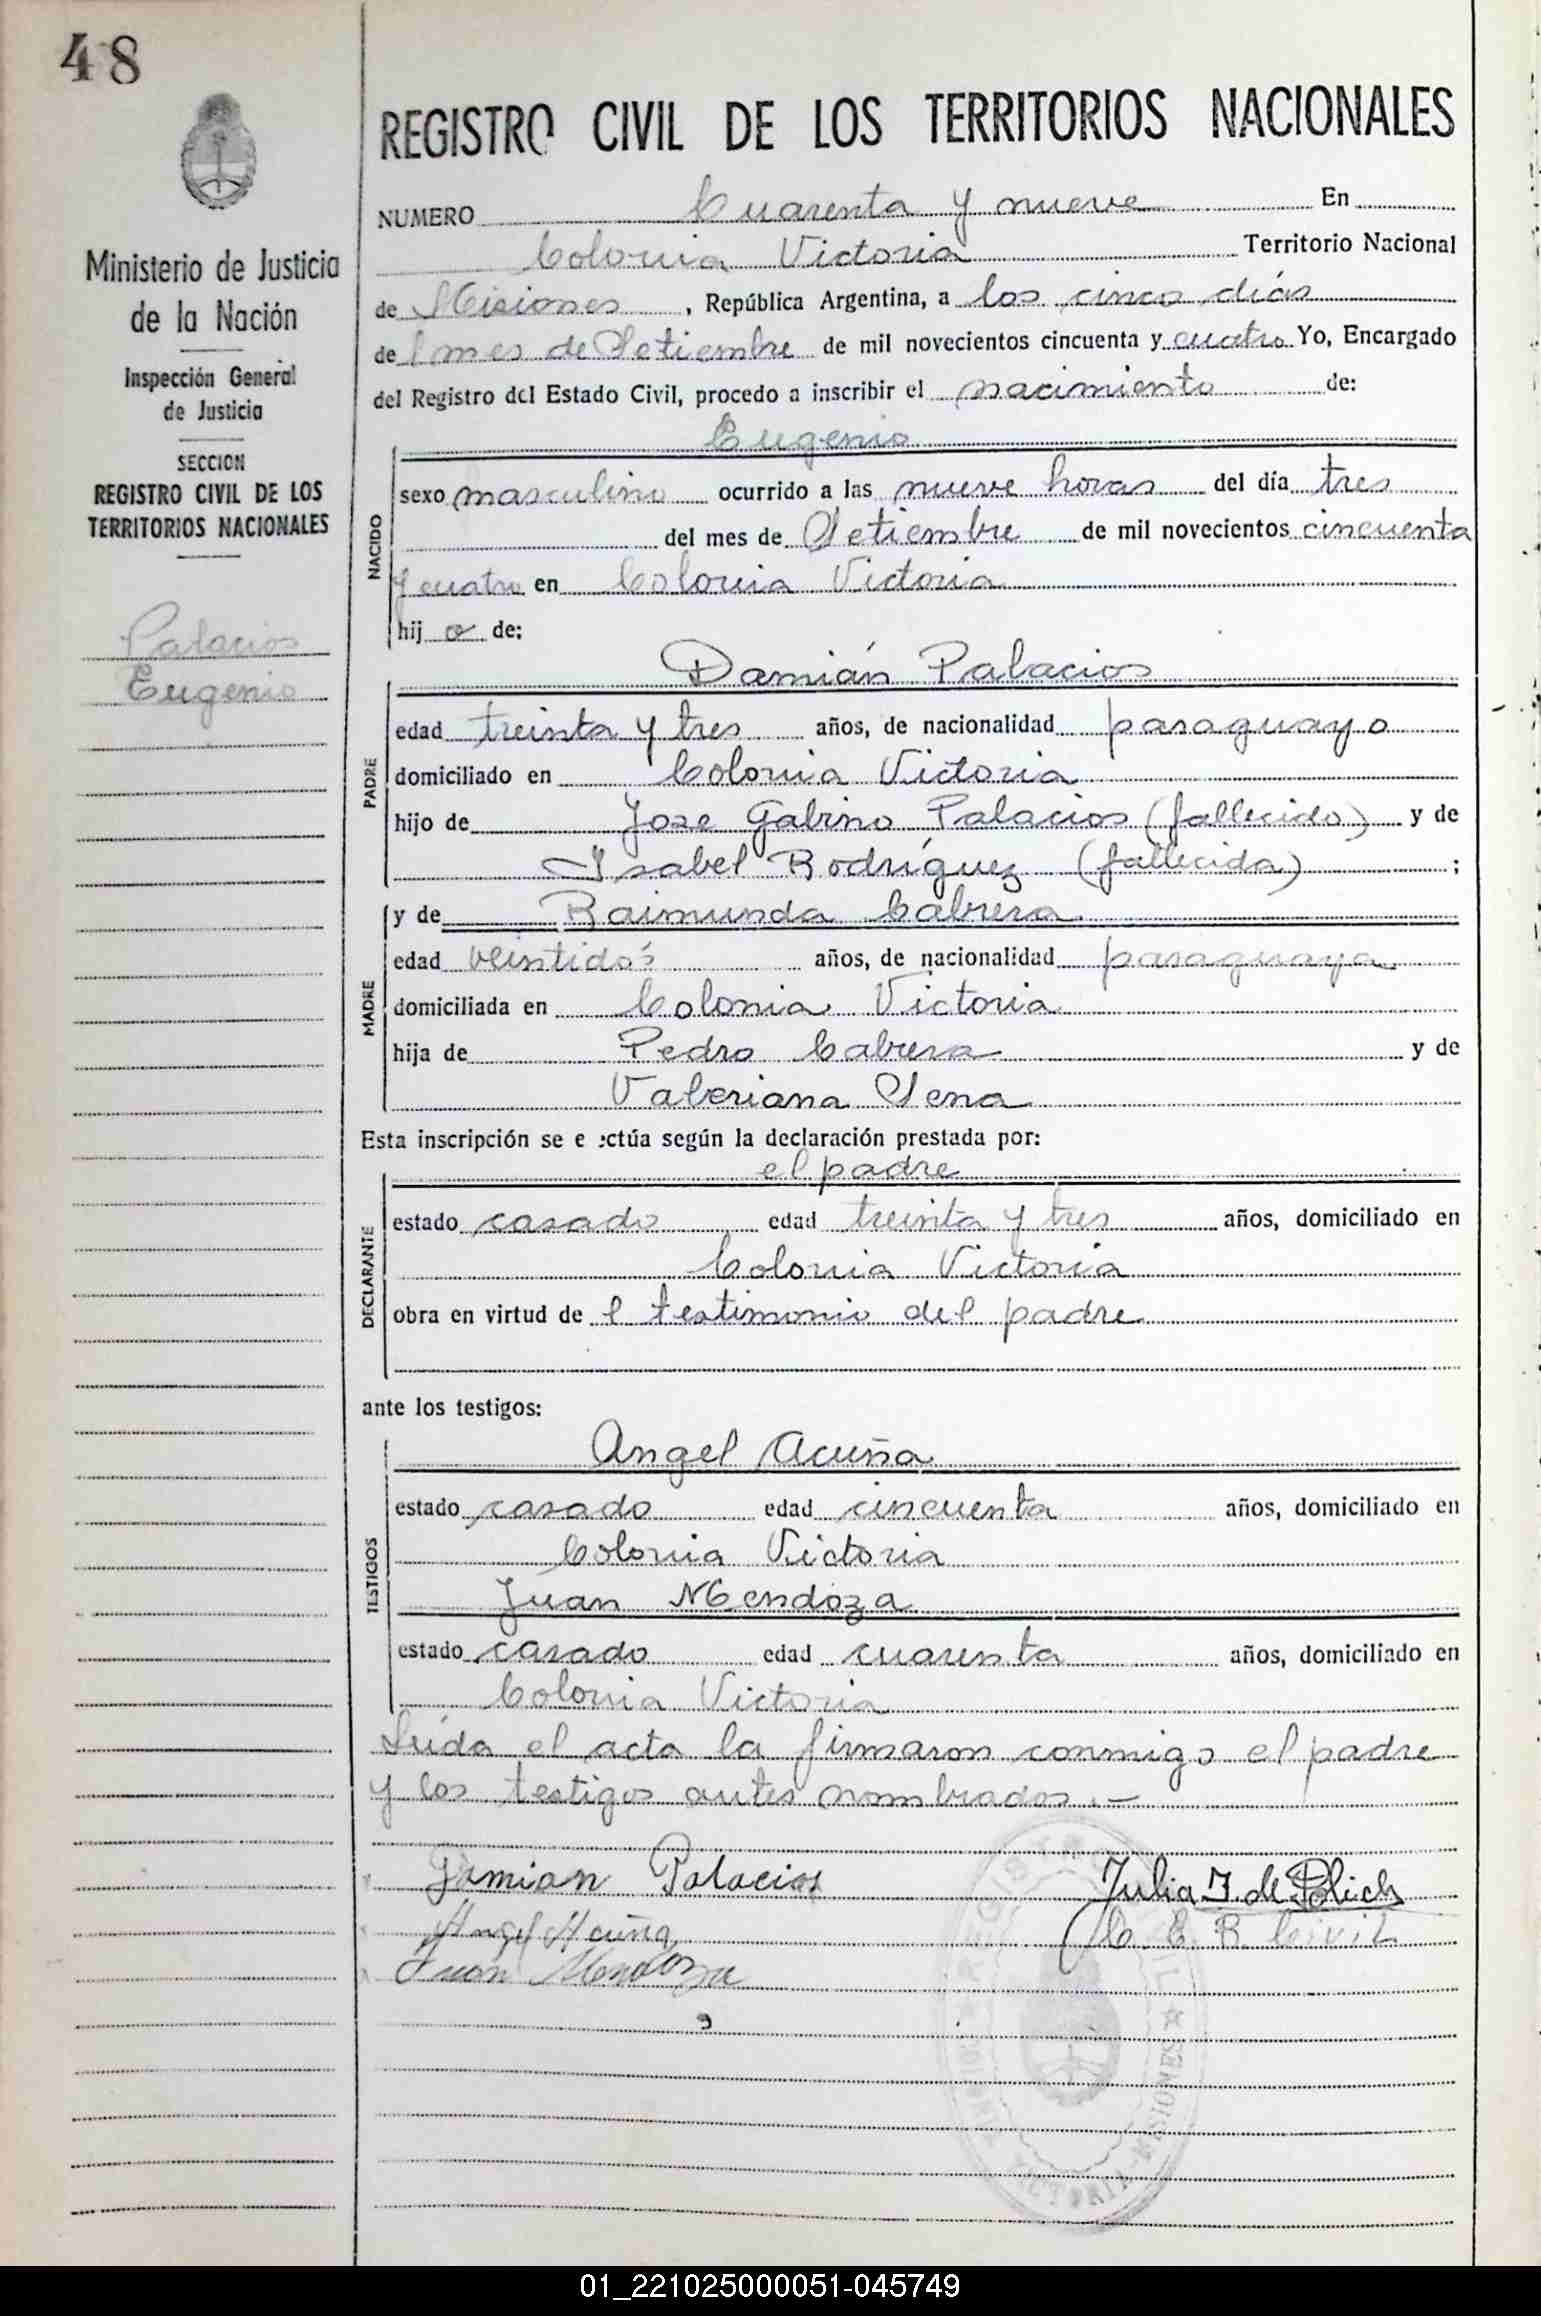 48
REGISTRO CIVIL DE LOS TERRITORIOS NACIONALES
Ministerio de Justicia
de la Nación
Inspección General
de Justicia
SECCION
REGISTRO CIVIL DE LOS
TERRITORIOS NACIONALES
Palacios
Eugenio
NUMERO Cuarenta y nueve En
Colonia Victoria Territorio Nacional
de Misiones, República Argentina, a los cinco días
del mes de Setiembre de mil novecientos cincuenta y cuatro Yo, Encargado
del Registro del Estado Civil, procedo a inscribir el nacimiento de:
Eugenio
NACIDO
sexo masculino ocurrido a las nueve horas del día tres
del mes de Setiembre de mil novecientos cincuenta
y cuatro en Colonia Victoria
hij o de:
Damián Palacios
PADRE
edad treinta y tres años, de nacionalidad paraguayo
domiciliado en Colonia Victoria
hijo de Jose Gabino Palacios (fallecido) y de
Isabel Rodríguez (fallecida) ;
y de Raimunda Cabrera
MADRE
edad veintidós años, de nacionalidad paraguaya
domiciliada en Colonia Victoria
hija de Pedro Cabrera y de
Valeriana Sena
Esta inscripción se e ectúa según la declaración prestada por:
el padre
DECLARANTE
estado casado edad treinta y tres años, domiciliado en
Colonia Victoria
obra en virtud de l testimonio del padre
ante los testigos:
Angel Acuña
TESTIGOS
estado casado edad cincuenta años, domiciliado en
Colonia Victoria
Juan Mendoza
estado casado edad cuarenta años, domiciliado en
Colonia Victoria
Leída el acta la firmaron conmigo el padre
y los testigos antes nombrados.-
Damian Palacios
Julia I de Polich
Angel Acuña
C. E. R. Civil
Juan Mendoza
VICTORIA MISIONES
01_221025000051-045749